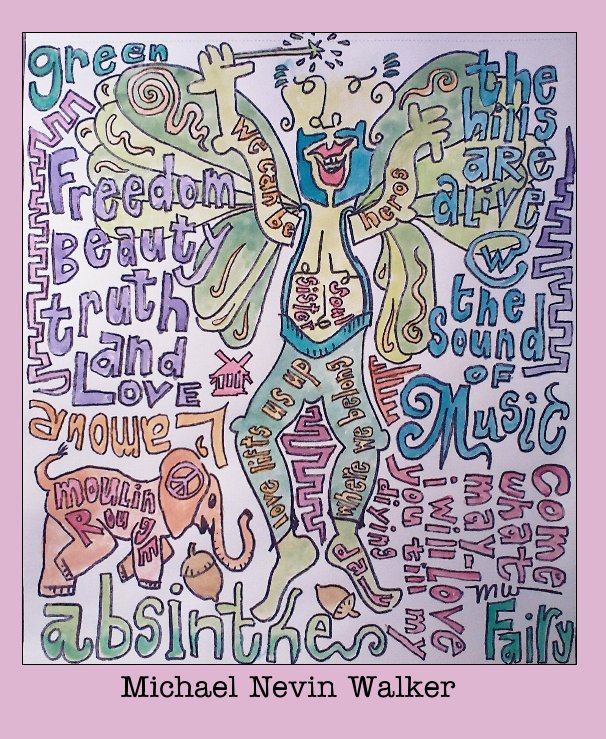 green
Freedom
Beauty
truth
and
Love
L'amour
moulin
Rouge
absinthe
we can be
heros
soul
sister
love lifts us up
where we belong
the
hills
are
alive
W
the
Sound
of
Music
Come
what
may-
i will-Love
you till my
diying
mu
Fairy
Michael Nevin Walker